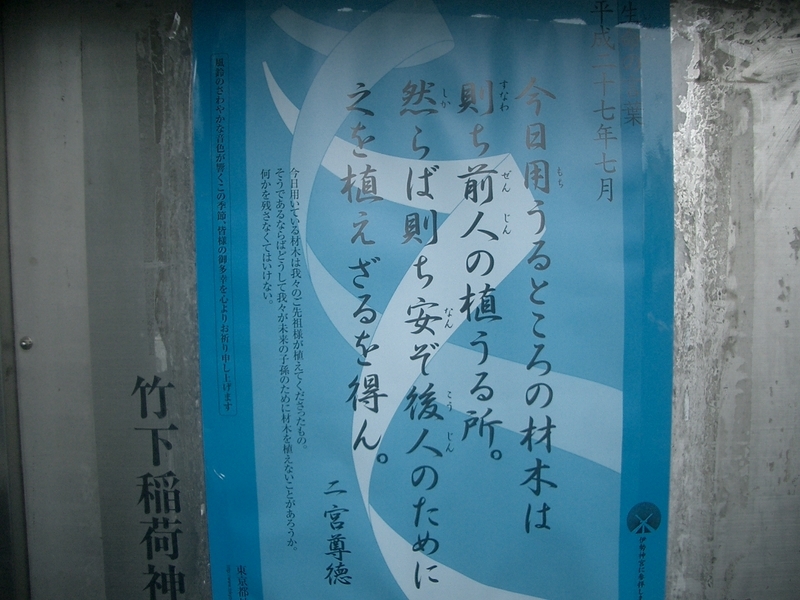 平成二十七年七月
今日用うるところの材木は
則ち前人の植うる所。
然らば則ち安ぞ後人のために
之を植えざるを得ん。
二宮尊徳
今日用いている材木は我々のご先祖様が植えてくださったもの。
そうであるならばどうして我々が未来の子孫のために材木を植えないことがあろうか。
何かを残さなくてはいけない。
風鈴のさわやかな音色が響くこの季節、皆様の御多幸を心よりお祈り申し上げます
伊勢神宮に参拝しま
東京都
竹下稲荷神